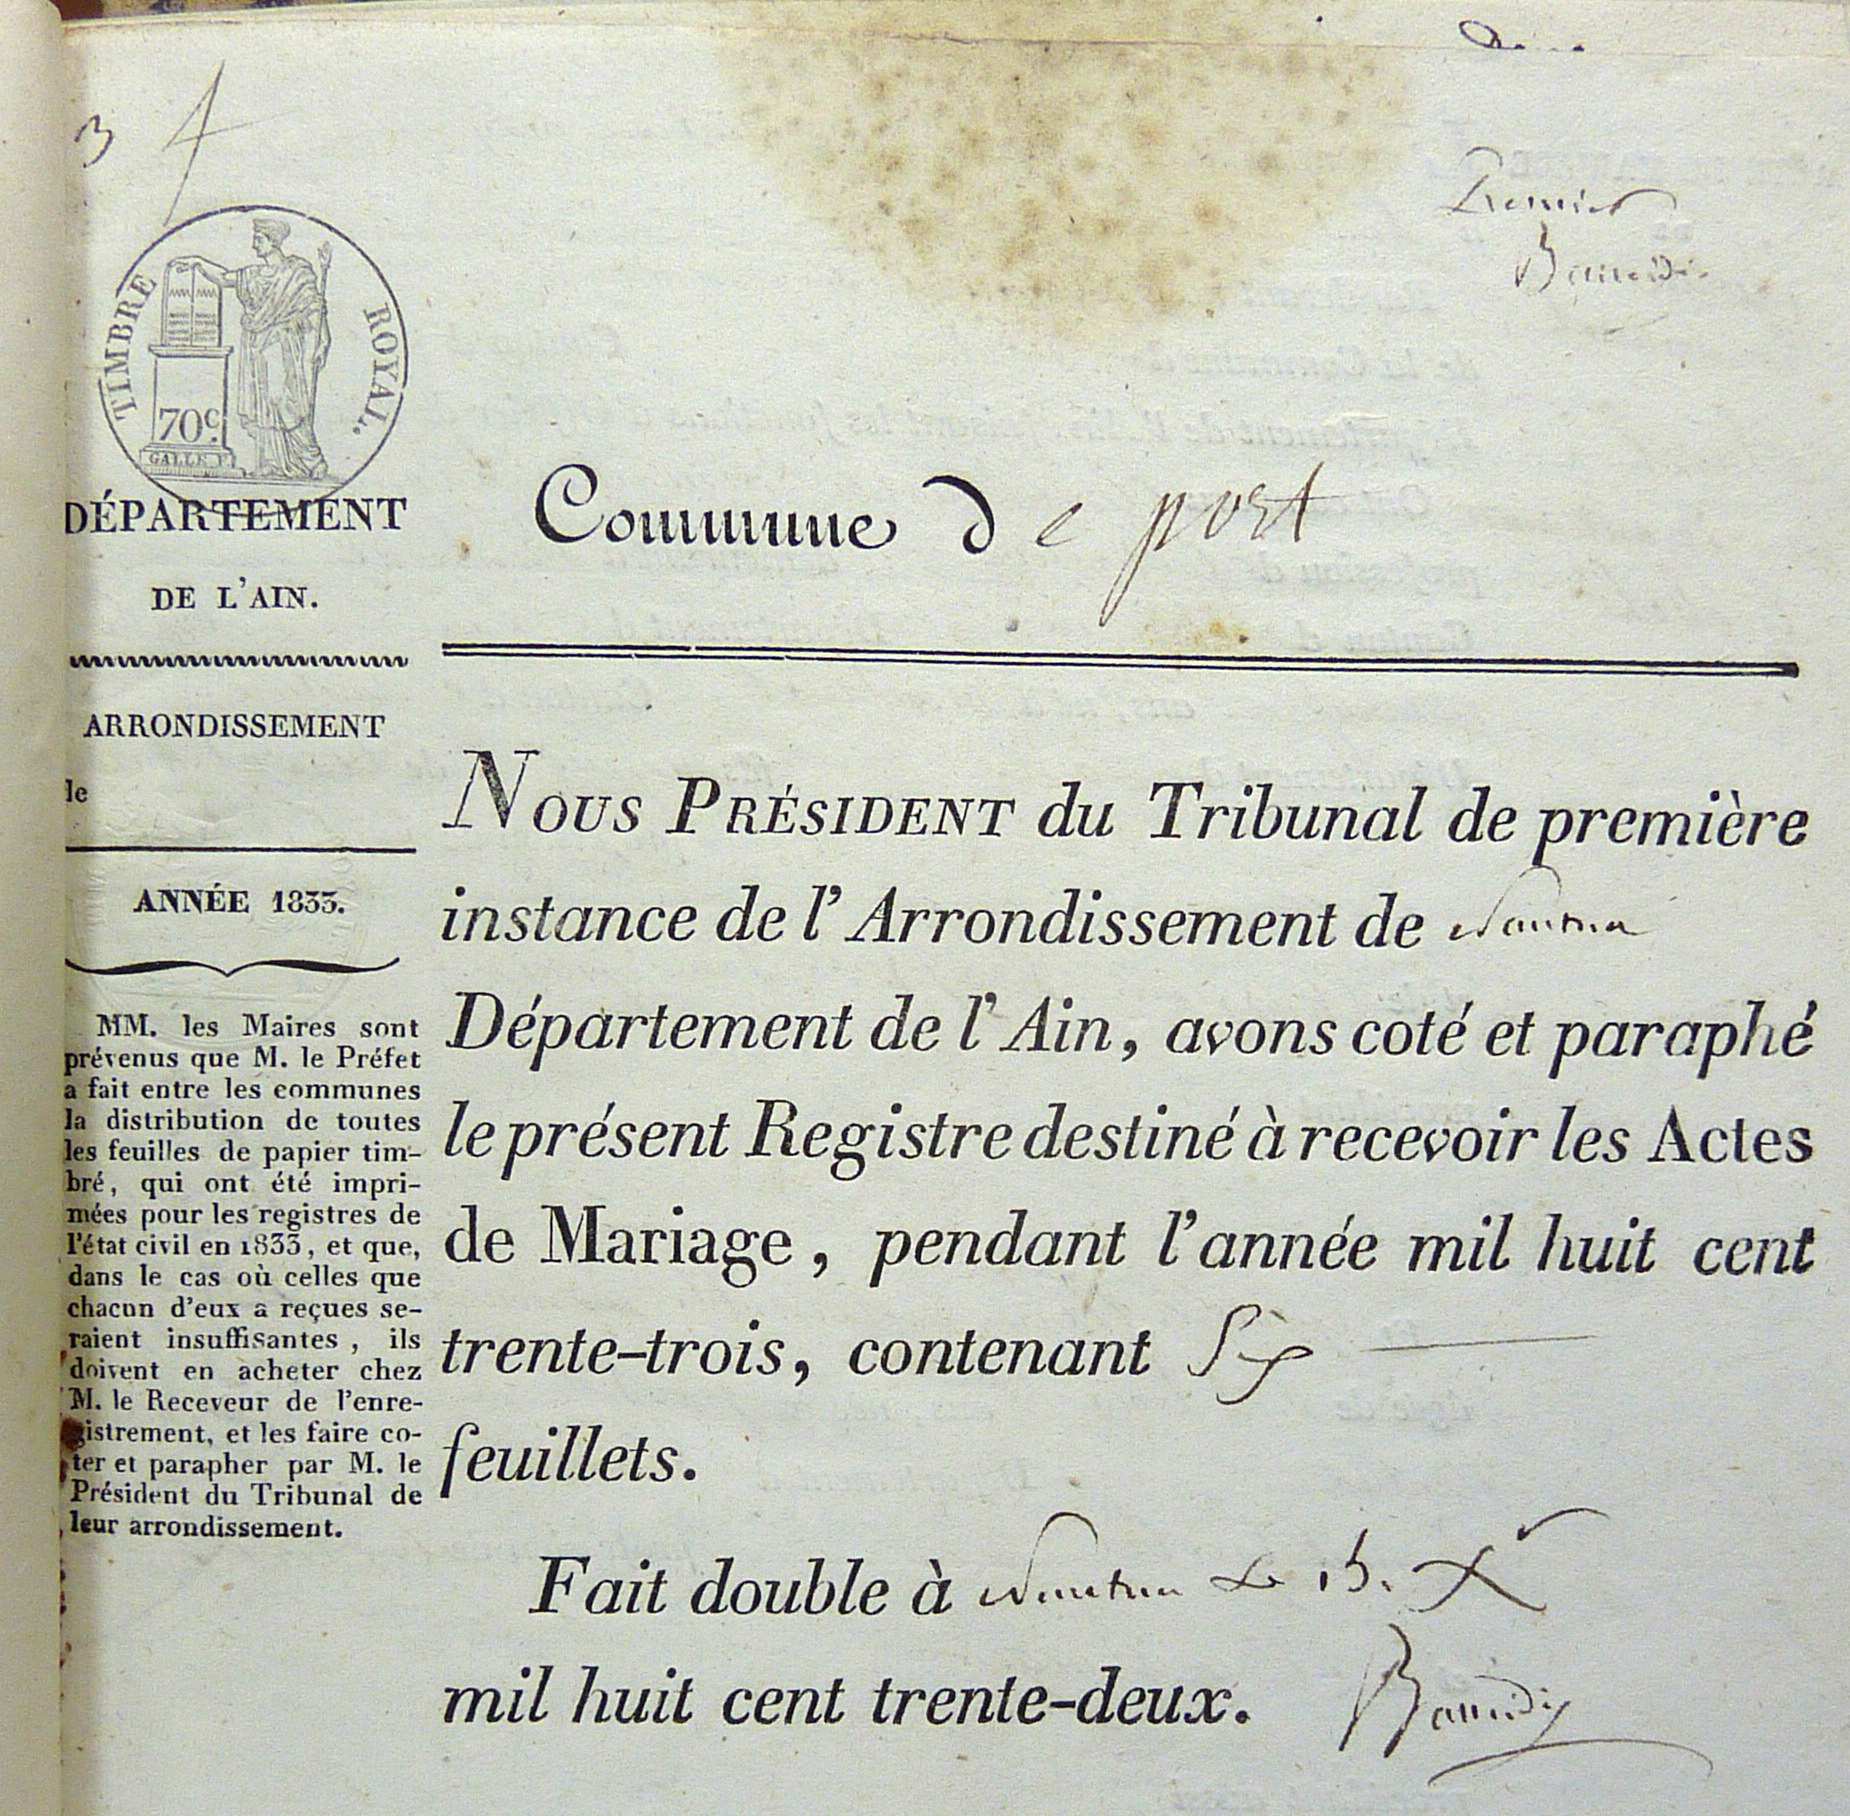 3 4
Premier
TIMBRE ROYAL.
70c.
GALLE F.
DÉPARTEMENT
DE L'AIN.
ARRONDISSEMENT
de
ANNÉE 1833.
MM. les Maires sont
prévenus que M. le Préfet
a fait entre les communes
la distribution de toutes
les feuilles de papier tim-
bré, qui ont été impri-
mées pour les registres de
l'état civil en 1833, et que,
dans le cas où celles que
chacun d'eux a reçues se-
raient insuffisantes, ils
doivent en acheter chez
M. le Receveur de l'enre-
gistrement, et les faire co-
ter et parapher par M. le
Président du Tribunal de
leur arrondissement.
Commune de port
NOUS PRÉSIDENT du Tribunal de première
instance de l'Arrondissement de Nantua
Département de l'Ain, avons coté et paraphé
le présent Registre destiné à recevoir les Actes
de Mariage, pendant l'année mil huit cent
trente-trois, contenant Six
feuillets.
Fait double à Nantua le 15. Xr
mil huit cent trente-deux.